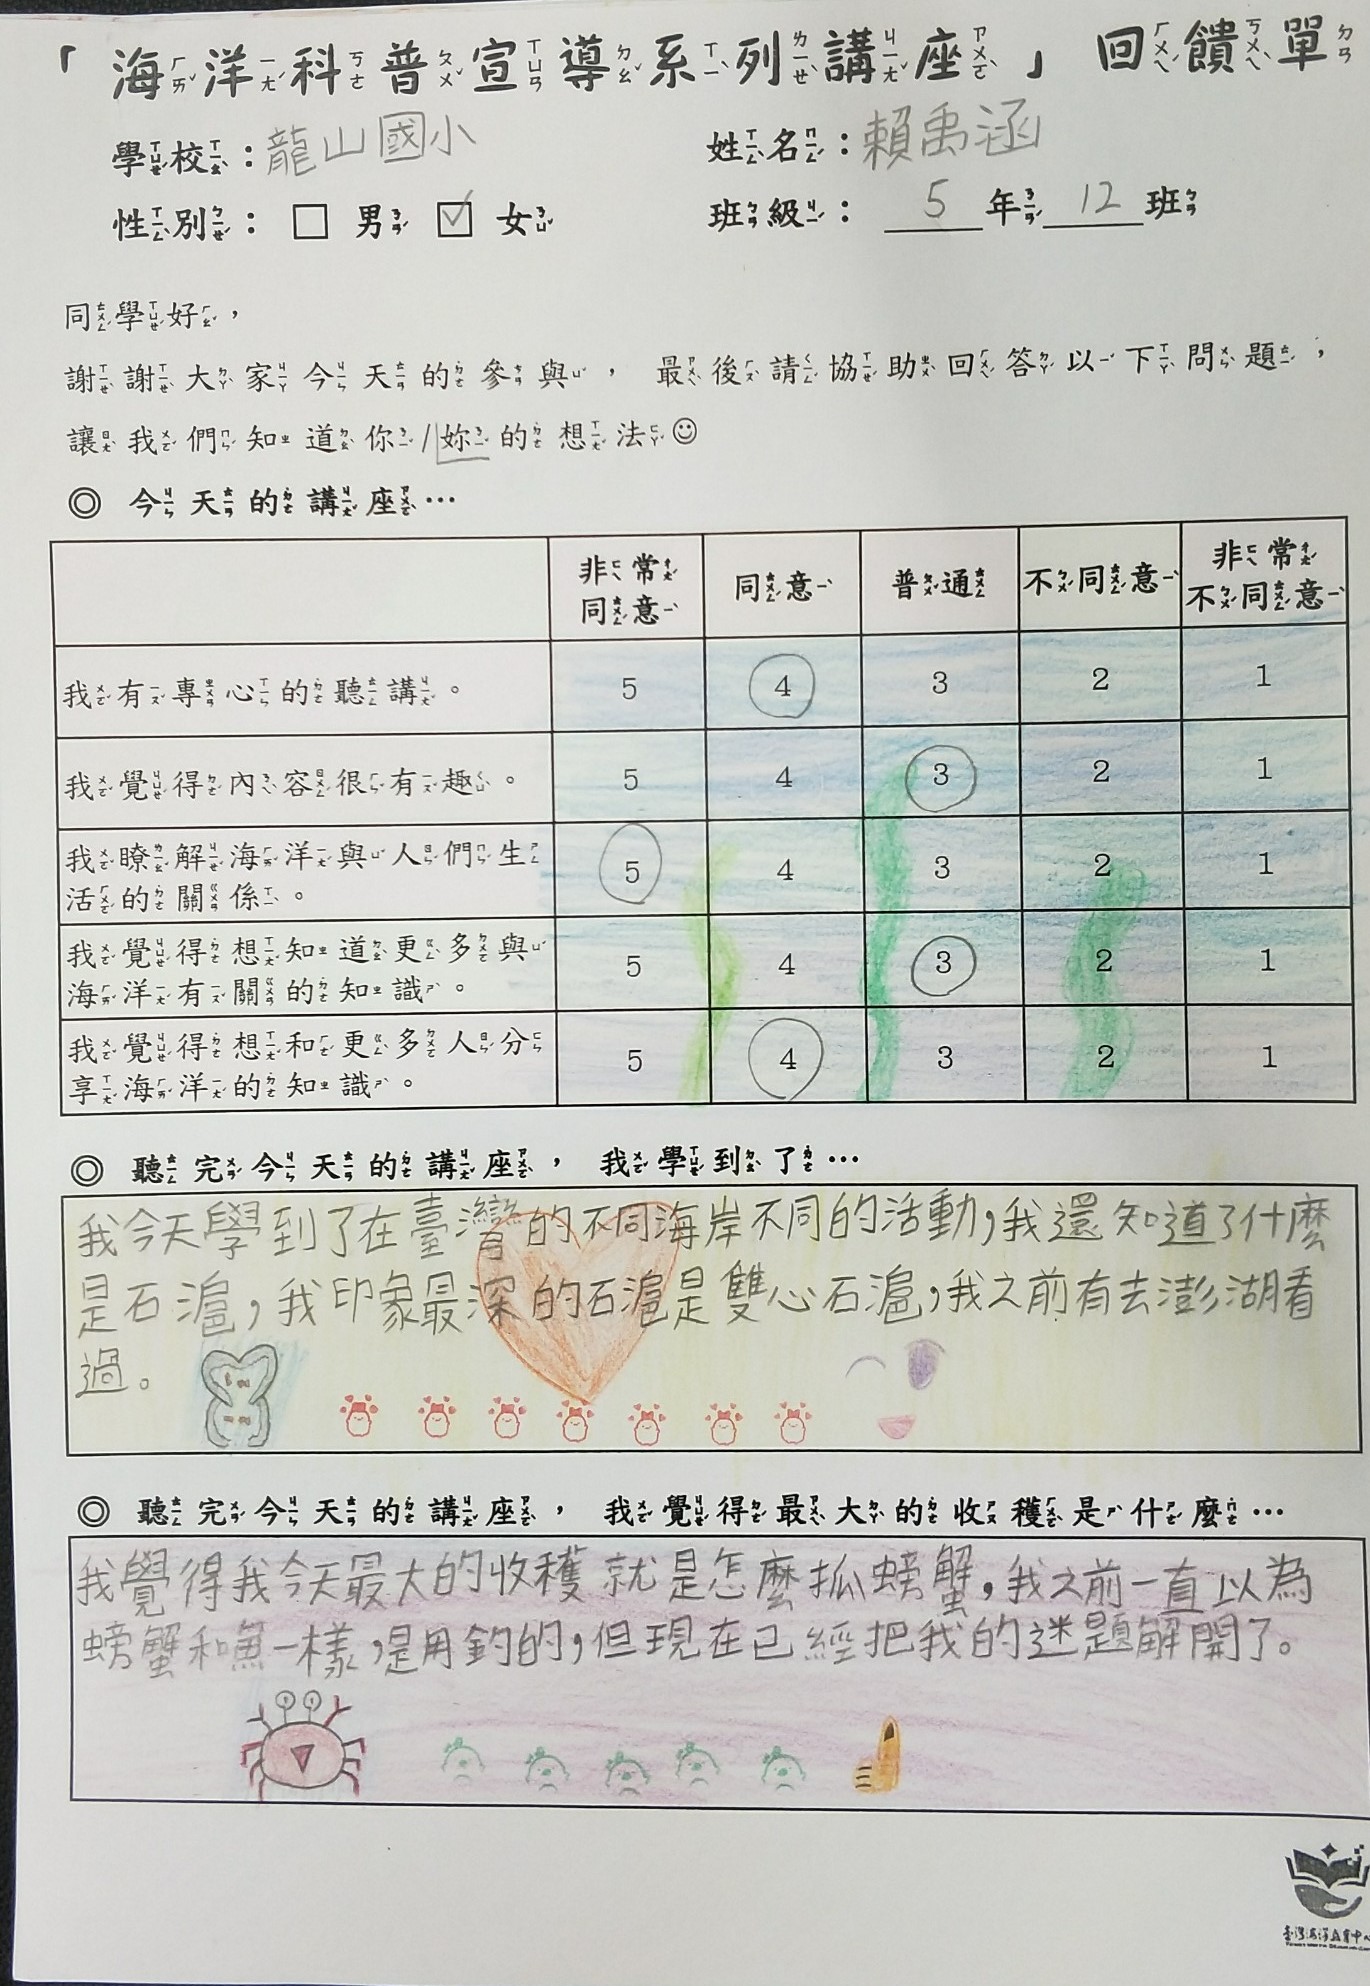 「海洋科普宣導系列講座」回饋單
學校：龍山國小 姓名：賴禹涵
性別：□男 ☑女 班級：5年12班
同學好，
謝謝大家今天的參與，最後請協助回答以下問題，
讓我們知道你/妳的想法☺
◎ 今天的講座…
非常同意 同意 普通 不同意 非常不同意
我有專心的聽講。 5 4 3 2 1
我覺得內容很有趣。 5 4 3 2 1
我瞭解海洋與人們生
活的關係。 5 4 3 2 1
我覺得想知道更多與
海洋有關的知識。 5 4 3 2 1
我覺得想和更多人分
享海洋的知識。 5 4 3 2 1
◎ 聽完今天的講座，我學到了…
我今天學到了在臺灣的不同海岸不同的活動，我還知道了什麼
是石滬，我印象最深的石滬是雙心石滬，我之前有去澎湖看
過。
◎ 聽完今天的講座，我覺得最大的收穫是什麼…
我覺得我今天最大的收穫就是怎麼抓螃蟹，我之前一直以為
螃蟹和魚一樣，是用釣的，但現在已經把我的迷題解開了。
臺灣海洋教育中心